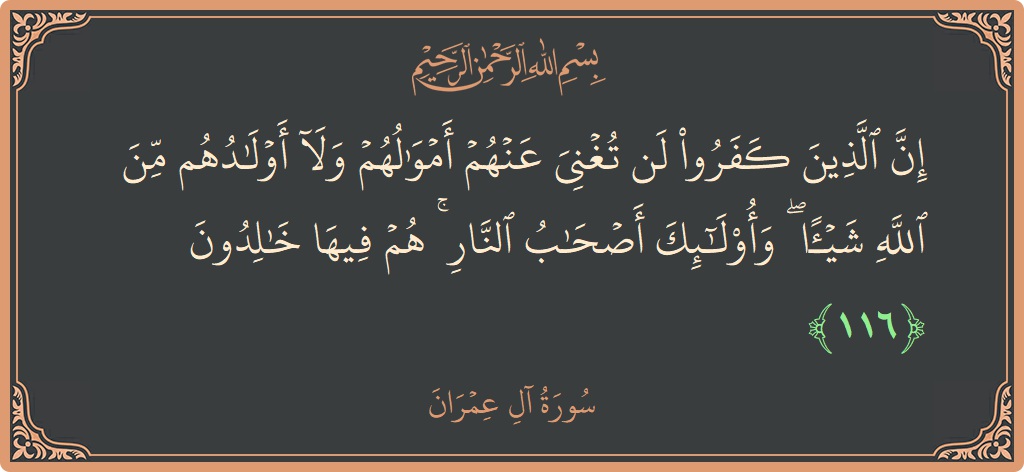 بِسْمِ اللَّهِ الرَّحْمَٰنِ الرَّحِيمِ
إِنَّ ٱلَّذِينَ كَفَرُوا۟ لَن تُغْنِىَ عَنْهُمْ أَمْوَٰلُهُمْ وَلَآ أَوْلَـٰدُهُم مِّنَ
ٱللَّهِ شَيْـًٔا ۖ وَأُو۟لَـٰٓئِكَ أَصْحَـٰبُ ٱلنَّارِ ۚ هُمْ فِيهَا خَـٰلِدُونَ
﴿١١٦﴾
سُورَةُ آلِ عِمْرَانَ